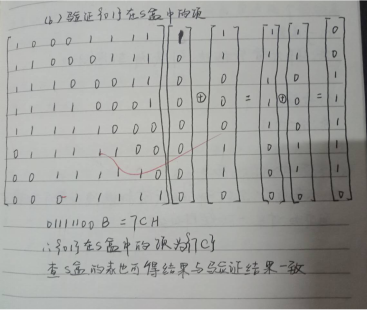 (b) 验证{01}在S盒中的项
1 0 0 0 1 1 1 1 1 1 1 1 0
1 1 0 0 0 1 1 1 0 1 1 1 0
1 1 1 0 0 0 1 1 0 0 1 0 1
1 1 1 1 0 0 0 1 0 ⊕ 0 = 1 ⊕ 0 = 1
1 1 1 1 1 0 0 0 0 0 1 0 1
0 1 1 1 1 1 0 0 0 1 0 1 1
0 0 1 1 1 1 1 0 0 1 0 1 1
0 0 0 1 1 1 1 1 0 0 0 0 0
01111100 B = 7CH
∴{01}在S盒中的项为{7C}
查S盒的表也可得结果与验证结果一致